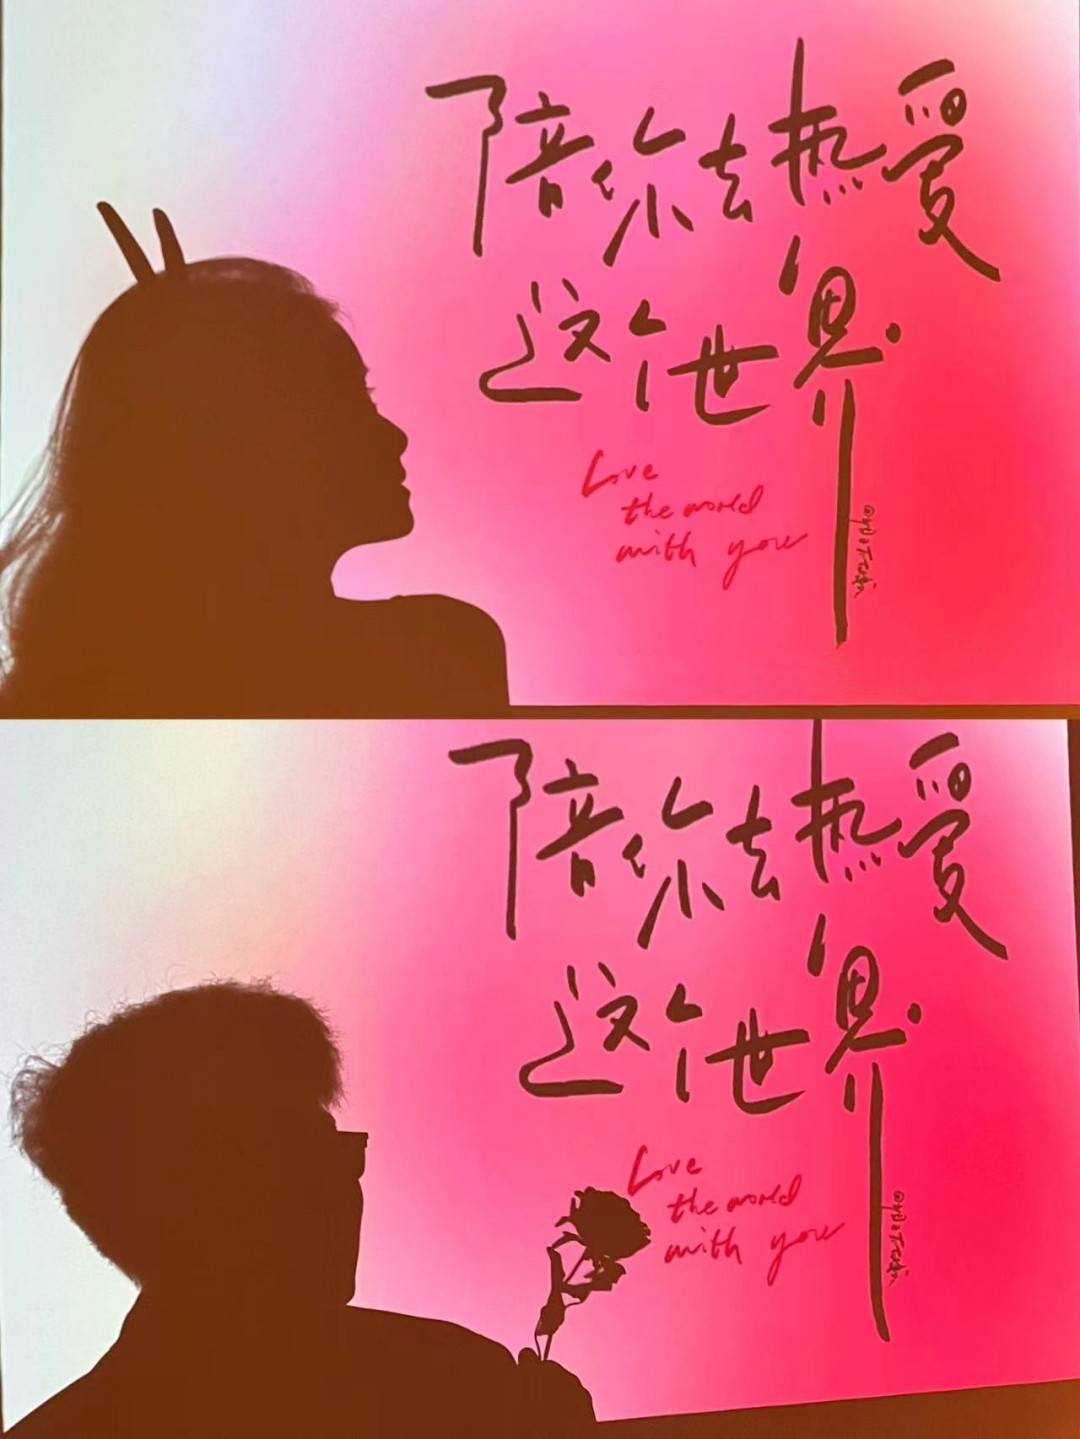 陪你去热爱
这个世界
Love
the world
with you
陪你去热爱
这个世界
Love
the world
with you